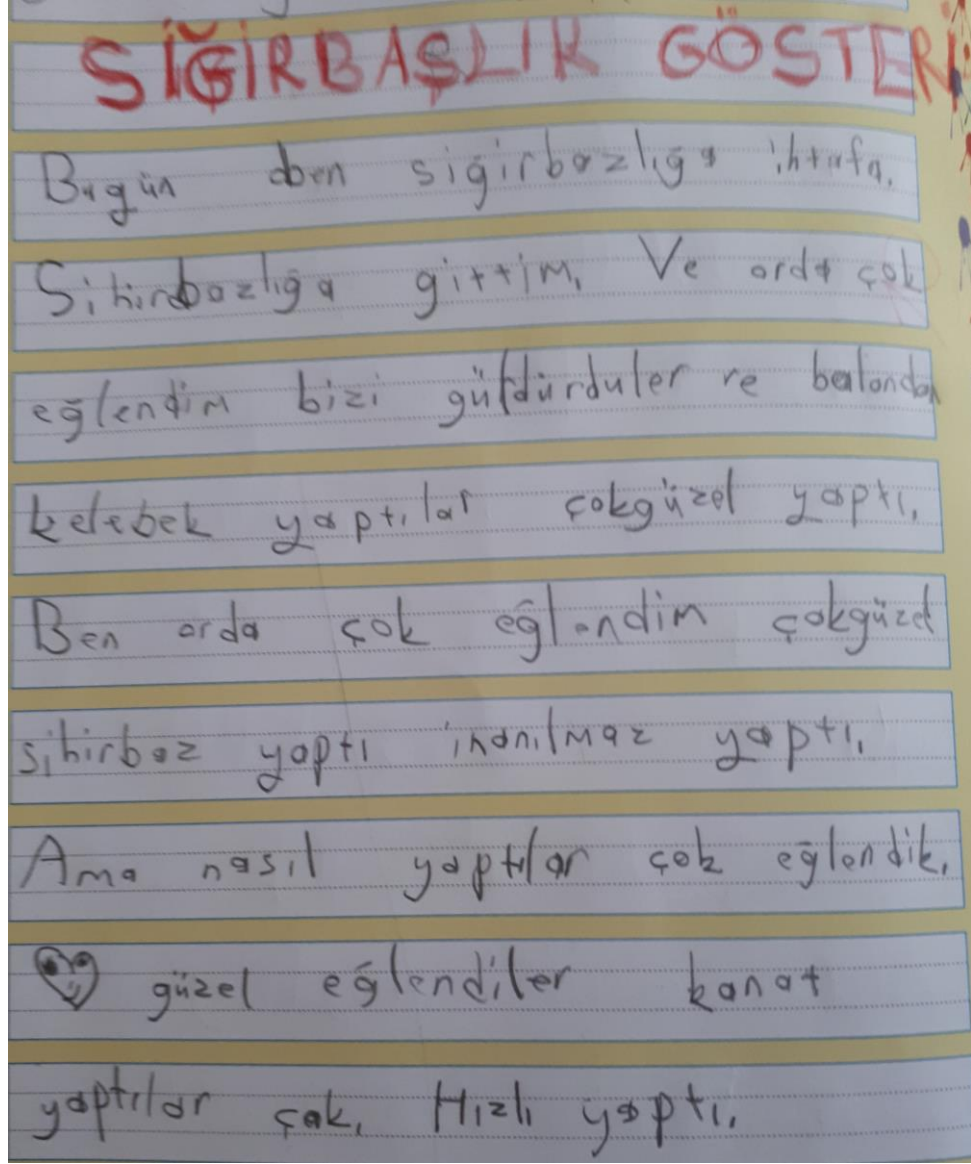 SİĞİRBAŞLIK GÖSTERİ
Bugün ben sigirbazlıga ihtıafa.
Sihirbazlıga gittim. Ve orda çok
eğlendim bizi güldürduler ve balondan
kelebek yaptılar çokgüzel yaptı.
Ben orda çok eğlendim çokgüzel
sihirbaz yaptı inanılmaz yaptı.
Ama nasıl yaptılar çok eğlendik.
güzel eğlendiler kanat
yaptılar çak. Hızlı yaptı.